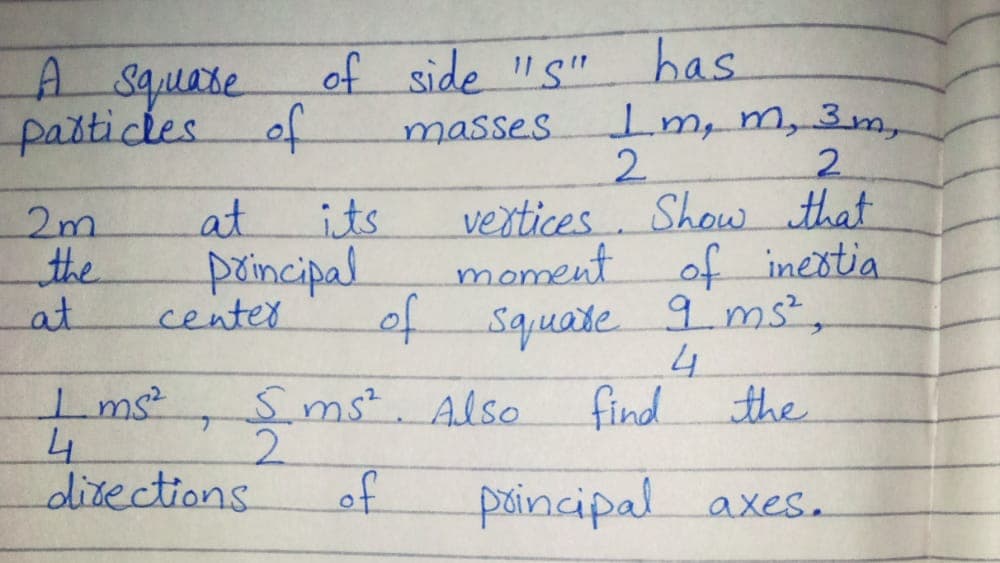 A square of side "s" has
particles of masses 1/2 m, m, 3/2 m,
2m at its vertices. Show that
the principal moment of inertia
at center of square 9/4 ms²,
1/4 ms², 5/2 ms². Also find the
directions of principal axes.